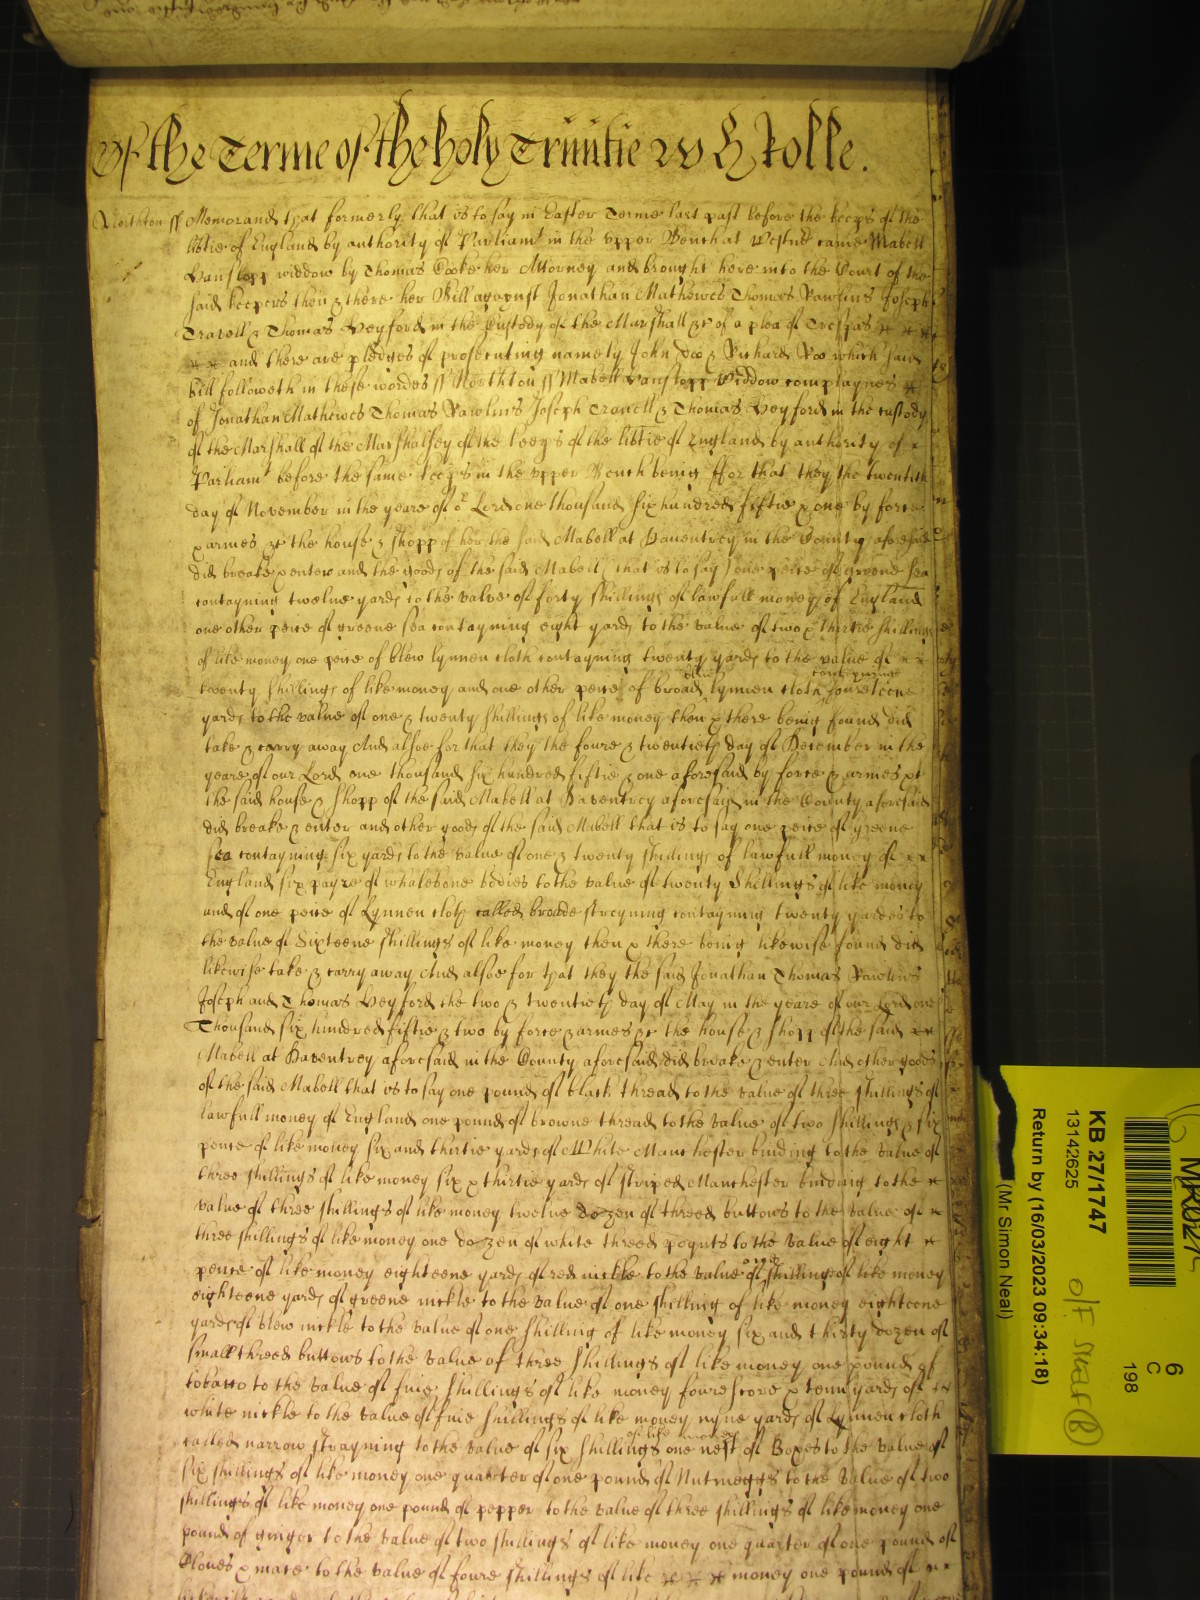 Of the Terme of the holy Trinitie
Northton ss Memorand that formerly that is to say in Easter Terme last past before the keeps of the
libtie of England by authority of Parliamt in the upper Bench at Westmr came Mabell
Vanstopp widdow by Thomas Cooke her Attorney and brought here into the Court of the
said keepers then & there her Bill against Jonathan Mathewes Thomas Rawlins Joseph
Travell & Thomas Heyford in the Custody of the Marshall &c of a plea of Trespas
and there are pledges of prosecuting namely John Doo & Richard Roo which said
bill followeth in these wordes ss Northton ss Mabell Vanstopp Widdow complaynes
of Jonathan Mathewes Thomas Rawlins Joseph Travell & Thomas Heyford in the custody
of the Marshall of the Marshalsey of the keeps of the libtie of England by authority of
Parliamt before the same keeps in the upper Bench being ffor that they the twentith
day of November in the yeare of or Lord one thousand six hundred fiftie & one by force
& armes &c the house & shopp of her the said Mabell at Daventrey in the County aforesaid
did breake & enter and the goods of the said Mabell (that is to say) one peice of greene sea
contayning twelve yards to the value of forty shillings of lawfull money of England
one other peice of greene sea contayning eight yards to the value of two & thirtie shillings
of like money one peice of blew lynnen cloth contayning twenty yards to the value of
twenty shillings of like money and one other peice of broad blew lynnen cloth contayning fourteene
yards to the value of one & twenty shillings of like money then & there being found did
take & carry away And alsoe for that they the foure & twentieth day of December in the
yeare of our Lord one thousand six hundred fiftie & one aforesaid by force & armes &c
the said house & shopp of the said Mabell at Daventrey aforesaid in the County aforesaid
did breake & enter and other goods of the said Mabell that is to say one peice of greene
sea contayning six yards to the value of one & twenty shillings of lawfull money of
England six payre of whalebone bodies to the value of twenty Shillings of like money
and of one peice of Lynnen cloth called broade streyning contayning twenty yardes to
the value of Sixteene shillings of like money then & there being likewise found did
likewise take & carry away And alsoe for that they the said Jonathan Thomas Rawlins
Joseph and Thomas Heyford the two & twentieth day of May in the yeare of our Lord one
Thousand six hundred fiftie & two by force & armes &c the house & shopp of the said
Mabell at Daventrey aforesaid in the County aforesaid did breake & enter And other goods
of the said Mabell that is to say one pound of black thread to the value of three shillings of
lawfull money of England one pound of browne thread to the value of two shillings & six
pence of like money six and thirtie yards of White Manchester binding to the value of
three shillings of like money six & thirtie yards of striped Manchester binding to the
value of three shillings of like money twelve dozen of threed buttons to the value of
three shillings of like money one dozen of white threed poynts to the value of eight
pence of like money eighteene yards of red nickle to the value of one shilling of like money
eighteene yards of greene nickle to the value of one shilling of like money eighteene
yards of blew nickle to the value of one shilling of like money six and thirty dozen of
small threed buttons to the value of three shillings of like money one pound of
tobacco to the value of five shillings of like money fourescore & tenn yards of
white nickle to the value of five shillings of like money nyne yards of Lynnen cloth
called narrow strayning to the value of six shillings of like money one nest of Boxes to the value of
six shillings of like money one quarter of one pound of Nutmeggs to the value of two
shillings of like money one pound of pepper to the value of three shillings of like money one
pound of ginger to the value of two shillings of like money one quarter of one pound of
Cloves & mace to the value of foure shillings of like money one pound of
KB 27/1747
13142625
Return by (16/03/2023 09:34:18)
(Mr Simon Neal)
6
C
198